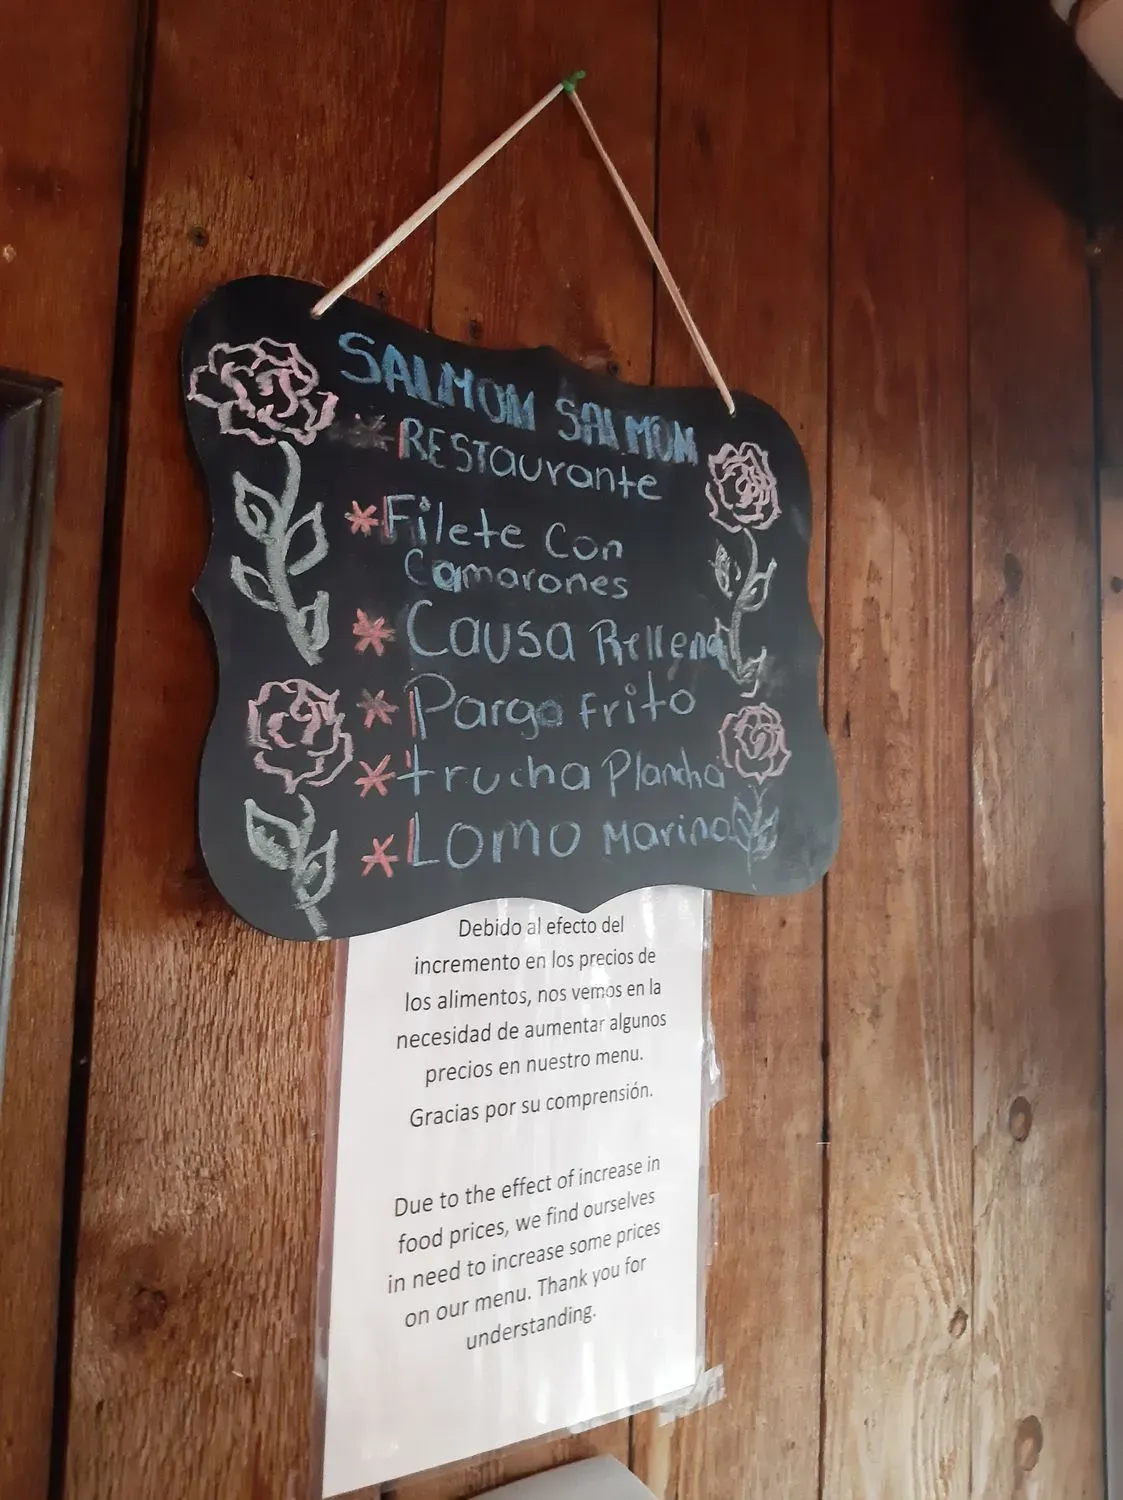 SALMON SALMON
RESTaurante
* Filete Con
Camarones
* Causa Rellena
* Pargo frito
* trucha Plancha
* Lomo Marino
Debido al efecto del
incremento en los precios de
los alimentos, nos vemos en la
necesidad de aumentar algunos
precios en nuestro menu.
Gracias por su comprensión.
Due to the effect of increase in
food prices, we find ourselves
in need to increase some prices
on our menu. Thank you for
understanding.